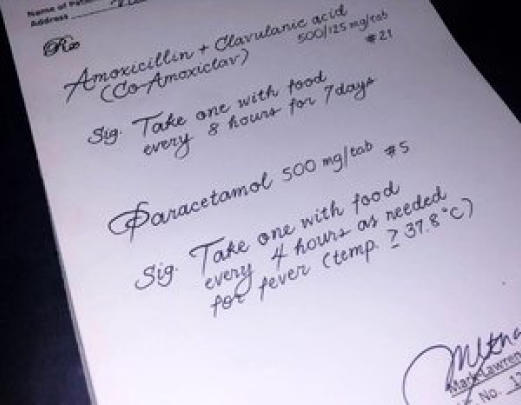 Name of Pat
Address
Rx
Amoxicillin + Clavulanic acid
(Co-Amoxiclav) 500/125 mg/tab
#21
Sig. Take one with food
every 8 hours for 7days
Paracetamol 500 mg/tab #5
Sig. Take one with food
every 4 hours as needed
for fever (temp. ≥ 37.8°C)
Mark Lawren
No.